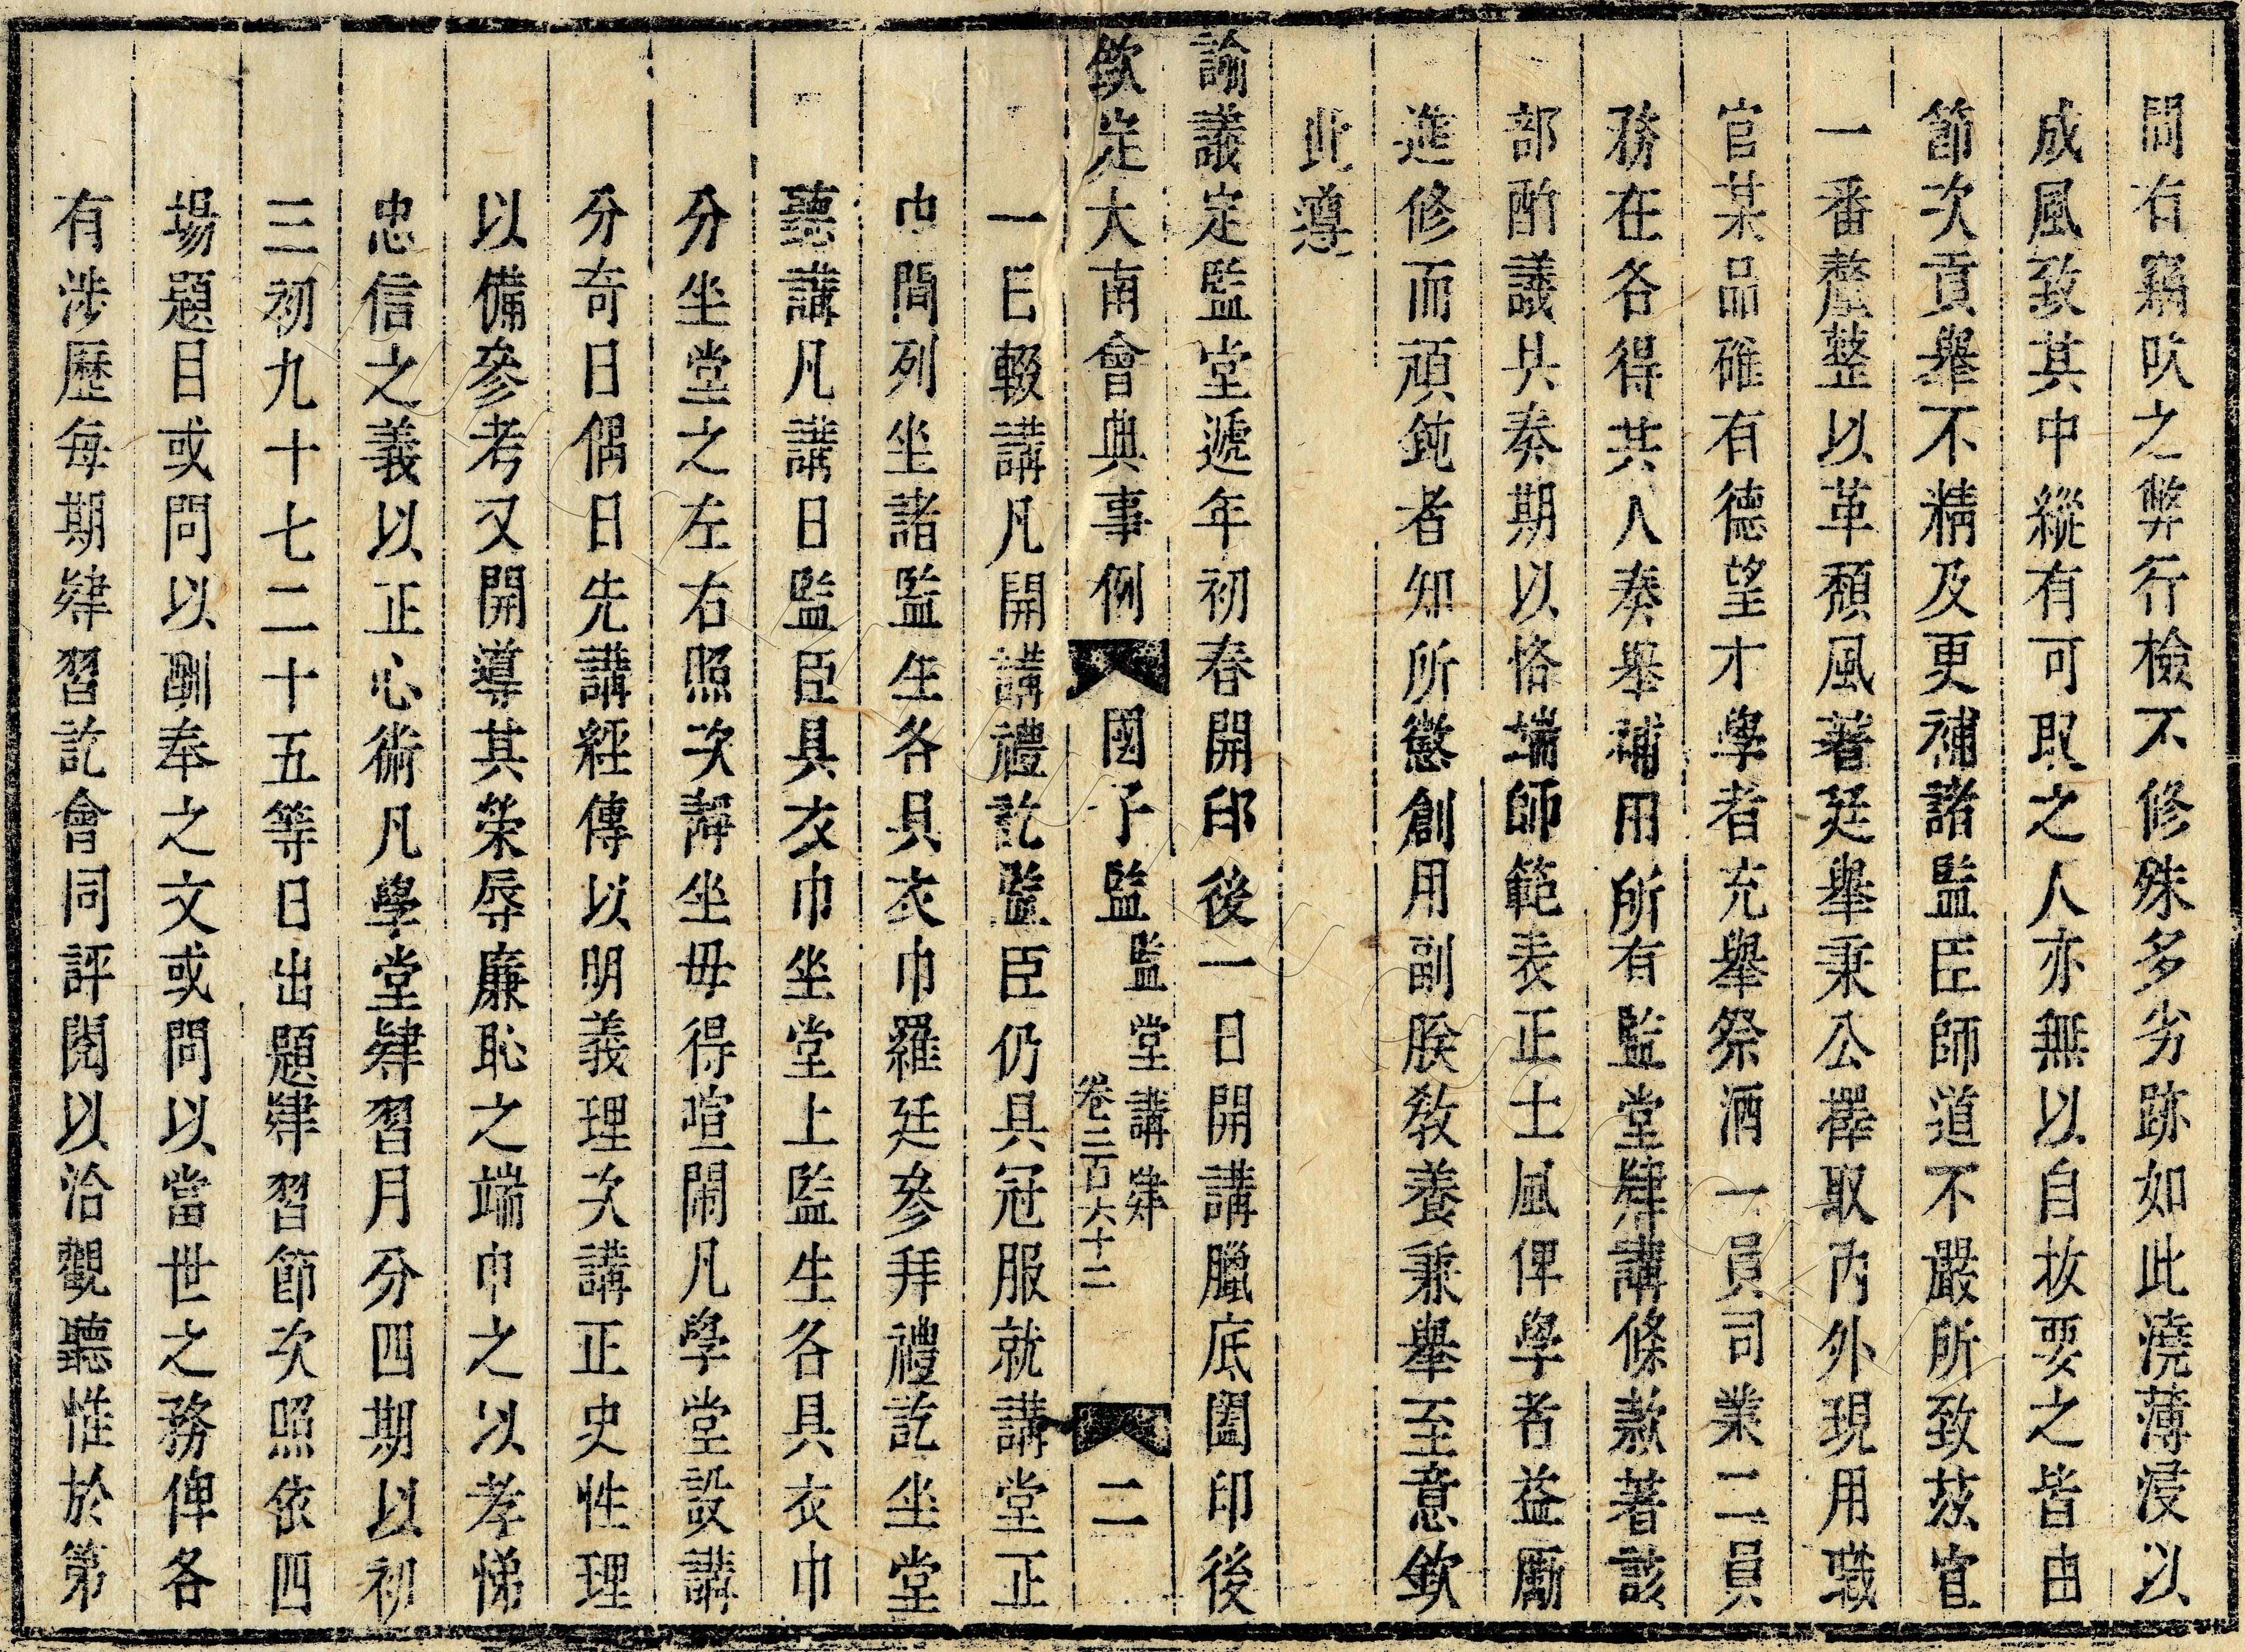 間有竊吹之弊行檢不修殊多劣跡如此澆薄浸以
成風致其中縱有可取之人亦無以自拔要之皆由
節次貢舉不精及更補諸監臣師道不嚴所致茲宜
一番釐整以革頹風著廷舉秉公擇取內外現用職
官某品確有德望才學者充舉祭酒一員司業二員
務在各得其人奏舉補用所有監堂肄講條款著該
部酌議具奏期以恪端師範表正士風俾學者益勵
進修而頑鈍者知所懲創用副朕教養兼舉至意欽
此遵
諭議定監堂遞年初春開印後一日開講臘底闔印後
欽定大南會典事例 國子監 監堂講肄 卷二百六十二 二
一日輟講凡開講禮訖監臣仍具冠服就講堂正
中間列坐諸監生各具衣巾羅廷參拜禮訖坐堂
聽講凡講日監臣具衣巾坐堂上監生各具衣巾
分坐堂之左右照次靜坐毋得喧鬧凡學堂設講
分奇日偶日先講經傳以明義理次講正史性理
以備參考又開導其榮辱廉恥之端申之以孝悌
忠信之義以正心術凡學堂肄習月分四期以初
三初九十七二十五等日出題肄習節次照依四
場題目或問以制奉之文或問以當世之務俾各
有涉歷每期肄習訖會同評閱以洽觀聽惟於第